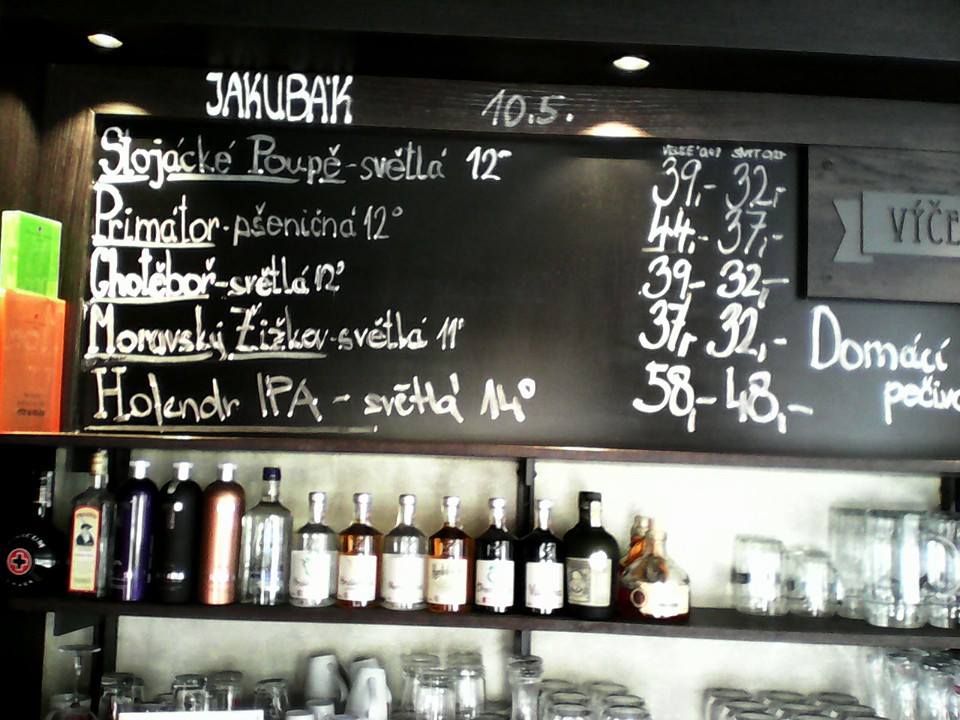 JAKUBÁK 10.5.
Stojácké Poupě - světlá 12° 39,- 32,-
Primátor - pšeničná 12° 44,- 37,-
Chotěboř - světlá 12° 39,- 32,-
Moravský Žižkov - světlá 11° 37,- 32,-
Holendr IPA - světlá 14° 58,- 48,-
VÍČE
Domácí
pečivo